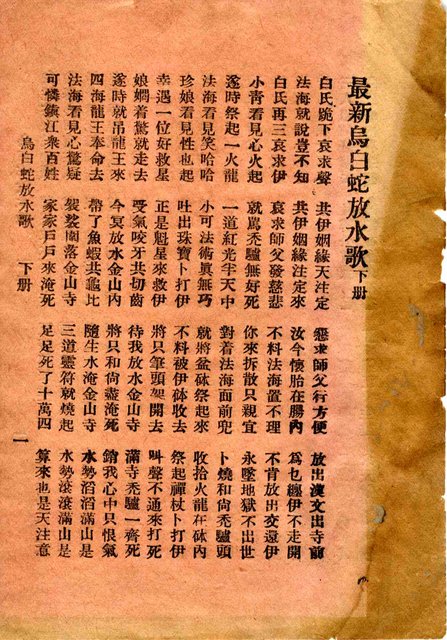 最新烏白蛇放水歌 下册
白氏跪下哀求聲 共伊姻緣天注定 懇求師父行方便 放出漢文出寺前
法海就說豈不知 共伊姻緣注定來 汝今懷胎在腸內 為乜纏伊不走開
白氏再三哀求伊 哀求師父發慈悲 不料法海置不理 不肯放出交還伊
小青看見心火起 就罵禿驢無好死 你來拆散只親宜 永墜地獄不出世
遂時祭起一火龍 一道紅光半天中 對着法海面前兜 卜燒和尚禿驢頭
法海看見笑哈哈 小可法術眞無巧 就將盆砵祭起來 收拾火龍在砵內
珍娘看見性也起 吐出珠寶卜打伊 不料被伊砵收去 祭起禪杖卜打伊
幸遇一位好救星 正是魁星來救伊 將只筆頭架開去 叫聲不通來打死
娘嫺着驚就走去 受氣咬牙共切齒 待我放水金山寺 滿寺禿驢一齊死
遂時就吊龍王來 今冥放水金山內 將只和尚盡淹死 銷我心中只恨氣
四海龍王奉命去 帶了魚蝦共龜比 隨生水淹金山寺 水勢滔滔滿山是
法海看見心驚疑 袈裟闌落金山寺 三道靈符就燒起 水勢滾滾滿山是
可憐鎭江衆百姓 家家戶戶來淹死 足足死了十萬四 算來也是天注意
烏白蛇放水歌 下册 一